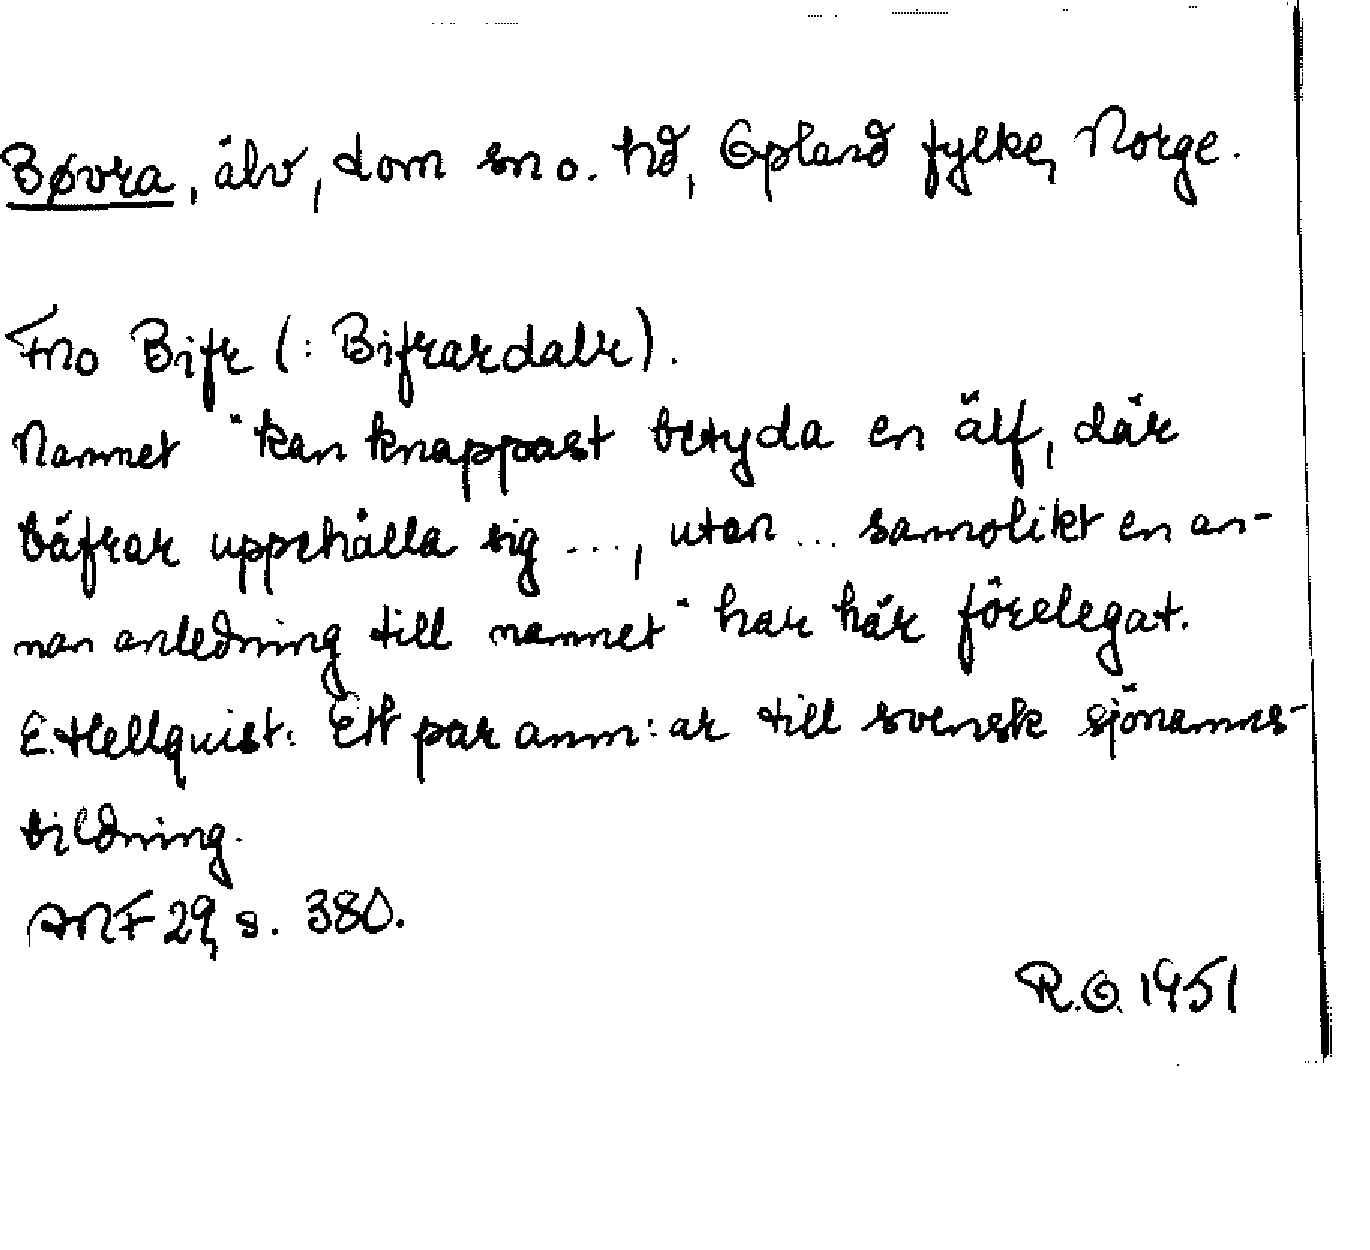 Bøvra, älv, Lom sn o. hd, Opland fylke, Norge.
Fno Bifr (: Bifrardalr).
Namnet "kan knappast betyda en älf, där
bäfrar uppehålla sig ..., utan ... sannolikt en an-
nan anledning till namnet" har här förelegat.
E. Hellquist: Ett par anm:ar till svensk sjönamns-
bildning.
ANF 29, s. 380.
R.O. 1951